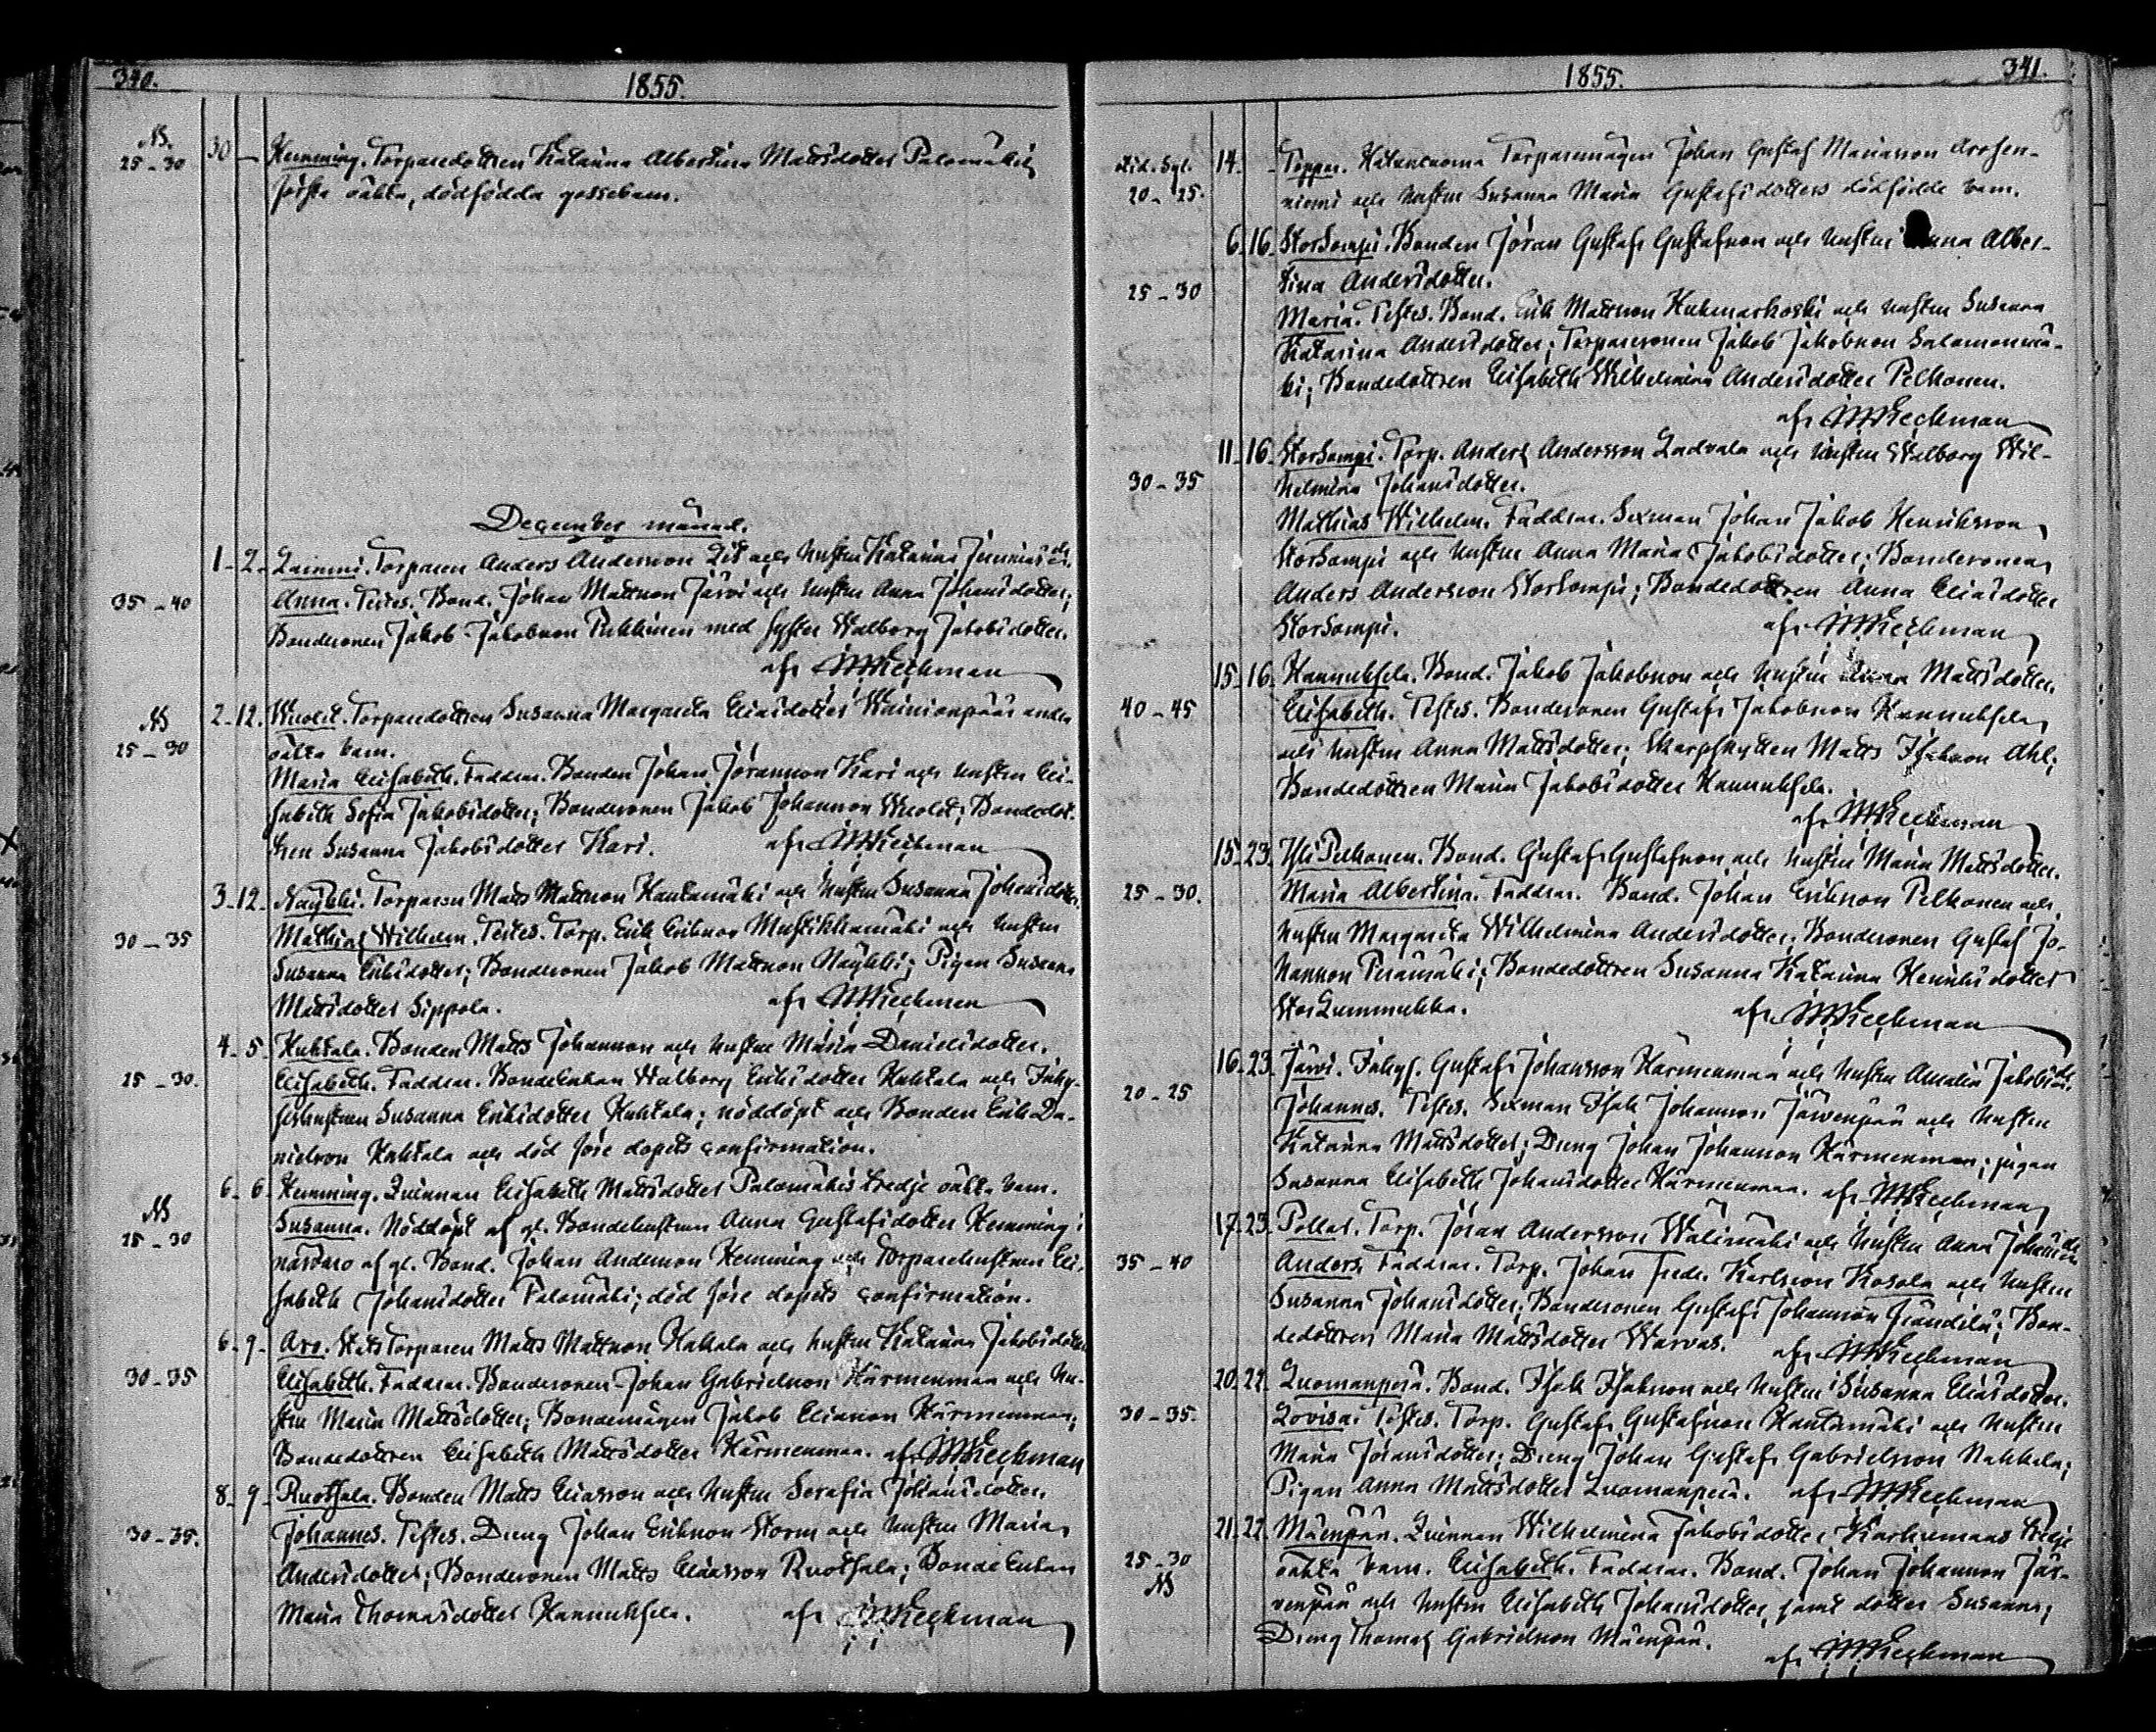 340.
1855.
NB.
25-30
30 — Hemming. Torparedottren Katarina Albertina Mattsdotter Palomäkis
första oäkta, dödfödda gossebarn.
December månad.
1-2- Anders Andersson och hustrun Katarina
35-40
Anna. Testes. Bond. Johan Mattsson Järvi och hustrun Anna Johansdotter;
Bondesonen Jakob Jakobsson med syster Walborg Jakobsdotter.
af
NB
25-30
2-12. Wuolet. Torparedottren Susanna Margareta Eliasdotter Wainionpääs andra
oäkta barn.
Maria Elisabeth. Faddrar. Bonden Johan Jöransson Kari och hustrun Eli-
sabeth Sofia Jakobsdotter; Bondesonen Jakob Johansson Wuolet; Bondedot-
tren Susanna Jakobsdotter Kari. af
3-12- Näykki. Torparen Matts Mattsson Hautamäki och hustrun Susanna Johansdotter.
30-35
Mathias Wilhelm. Testes. Torp. Erik Eriksson Mustikkamäki och hustrun
Susanna Eriksdotter; Bondesonen Jakob Mattsson Näykki; Pigan Susanna
Mattsdotter Sippola. af
4-5- Huhtala. Bonden Matts Johansson och hustrun Maria Danielsdotter.
25-30.
Elisabeth. Faddrar. Bondeenkan Walborg Eriksdotter Huhtala och Inhy-
seshustrun Susanna Eriksdotter Huhtala; nöddöpt och Bonden Erik Da-
nielsson Huhtala och död före dopets confirmation.
6-6- Hemming. Qvinnan Elisabeth Mattsdotter Palomäkis tredje oäkta barn.
NB
25-30
Susanna. Nöddöpt af gl. Bondehustrun Anna Gustafsdotter Hemming i
närvaro af gl. Bond. Johan Andersson Hemming och Torparehustrun Eli-
sabeth Johansdotter Palomäki; död före dopets confirmation.
6-9- Aro. Torparen Matts Mattsson Hakkala och hustrun Katarina Jakobsdotter
30-35
Elisabeth. Faddrar. Bondesonen Johan Gabrielsson Härmenmaa och hu-
strun Maria Mattsdotter; Bondemågen Jakob Eliasson Härmenmaa;
Bondedottren Elisabeth Mattsdotter Härmenmaa. af
8-9- Ruotsala. Bonden Matts Eliasson och hustrun Serafia Johansdotter.
30-35.
Johannes. Testes. Dräng Johan Eriksson Storm och hustrun Maria
Andersdotter; Bondesonen Matts Eliasson Ruotsala; Bonde Enkan
Maria Thomasdotter Hannuksela. af
1855.
341.
20-25.
14. — Topper. Johan Gustaf
och hustrun Susanna Maria Gustafsdotters dödfödde barn.
6-16- Storsompi. Bonden Jöran Gustaf Gustafsson och hustrun Anna Alber-
25-30
tina Andersdotter.
Maria. Testes. Bond. Erik Mattsson Huhmarkoski och hustrun Susanna
Katarina Andersdotter; Torparesonen Jakob Jakobsson Salomonmä-
ki; Bondedottren Elisabeth Wilhelmina Andersdotter Pelkonen.
af
11-16- Storsompi. Torp. Anders Andersson Ladvala och hustrun Walborg Wil-
30-35
helmina Johansdotter.
Mathias Wilhelm. Faddrar. Sexman Johan Jakob Henriksson
Storsompi och hustrun Anna Maria Jakobsdotter; Bondesonen
Anders Andersson Storsompi; Bondedottren Anna Eliasdotter
Storsompi. af
15-16- Hannuksela. Bond. Jakob Jakobsson och hustrun Anna Mattsdotter.
40-45
Elisabeth. Testes. Bondesonen Gustaf Jakobsson Hannuksela
och hustrun Anna Mattsdotter; Skarpskytten Matts Isaksson Ahl;
Bondedottren Maria Jakobsdotter Hannuksela.
af
15-23. Yli Pelkonen. Bond. Gustaf Gustafsson och hustrun Maria Mattsdotter.
25-30.
Maria Albertina. Faddrar. Bond. Johan Eriksson Pelkonen och
hustrun Margareta Wilhelmina Andersdotter; Bondesonen Gustaf Jo-
hansson Perämäki; Bondedottren Susanna Katarina Henriksdotter
StorLummukka. af
16-23. Järvi. Inhys. Gustaf Johansson Härmenmaa och hustrun Amalia Jakobsdr.
20-25
Johannes. Testes. Sexman Isak Johansson Järvenpää och hustrun
Katarina Mattsdotter; Dräng Johan Johansson Härmenmaa; pigan
Susanna Elisabeth Johansdotter Härmenmaa. af
17-23. Pollas. Torp. Jöran Andersson Wälimäki och hustrun Anna Johansdr
35-40
Anders. Faddrar. Torp. Johan Fredr. Karlsson Kosola och hustrun
Susanna Johansdotter; Bondesonen Gustaf Johansson Bon-
dedottren Maria Mattsdotter Warvas. af
20-22. Luomanperä. Bond. Isak Isaksson och hustrun Susanna Eliasdotter.
30-35.
Lovisa. Testes. Torp. Gustaf Gustafsson Hautamäki och hustrun
Maria Jöransdotter; Dräng Johan Gustaf Gabrielsson Nahkala;
Pigan Anna Mattsdotter Luomanperä. af
21-22. Mäenpää. Qvinnan Wilhelmina Jakobsdotter tredje
25-30
NB
oäkta barn. Elisabeth. Faddrar. Bond. Johan Johansson Jär-
venpää och hustrun Elisabeth Johansdotter, samt dotter Susanna;
Dräng Thomas Gabrielsson Mäenpää.
af